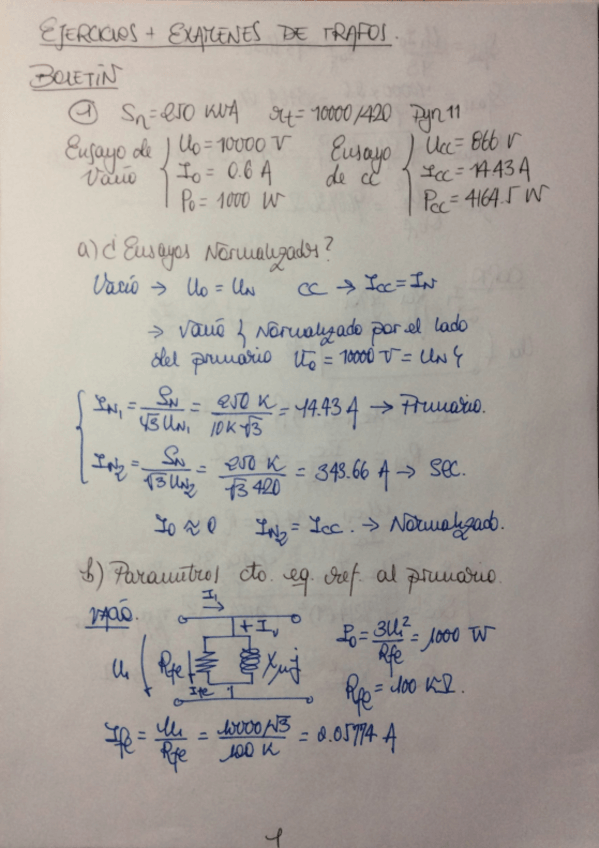 EJERCICIOS + EXÁMENES DE TRAFOS.
BOLETÍN
① Sn = 250 KVA rt = 10000/420 Dyn 11
Ensayo de Vacío { U0 = 10000 V Ensayo de cc { Ucc = 866 V
I0 = 0.6 A Icc = 14.43 A
P0 = 1000 W Pcc = 4164.5 W
a) ¿Ensayos Normalizados?
Vacío → U0 = UN cc → Icc = IN
⇒ Vacío { Normalizado por el lado
del primario U0 = 10000 V = UN }
IN1 = SN/√3 UN1 = 250 K/10K √3 = 14.43 A → Primario.
IN2 = SN/√3 UN2 = 250 K/√3 420 = 343.66 A → SEC.
I0 ≈ 0 IN2 = Icc. → Normalizado.
b) Parámetros cto. eq. ref. al primario.
VACÍO.
I1
+ Iv
U1 Rfe Xμ j
Ife
P0 = 3U1²/Rfe = 1000 W
Rfe = 100 KΩ.
Ife = U1/Rfe = 10000/√3/100 K = 0.05774 A
1